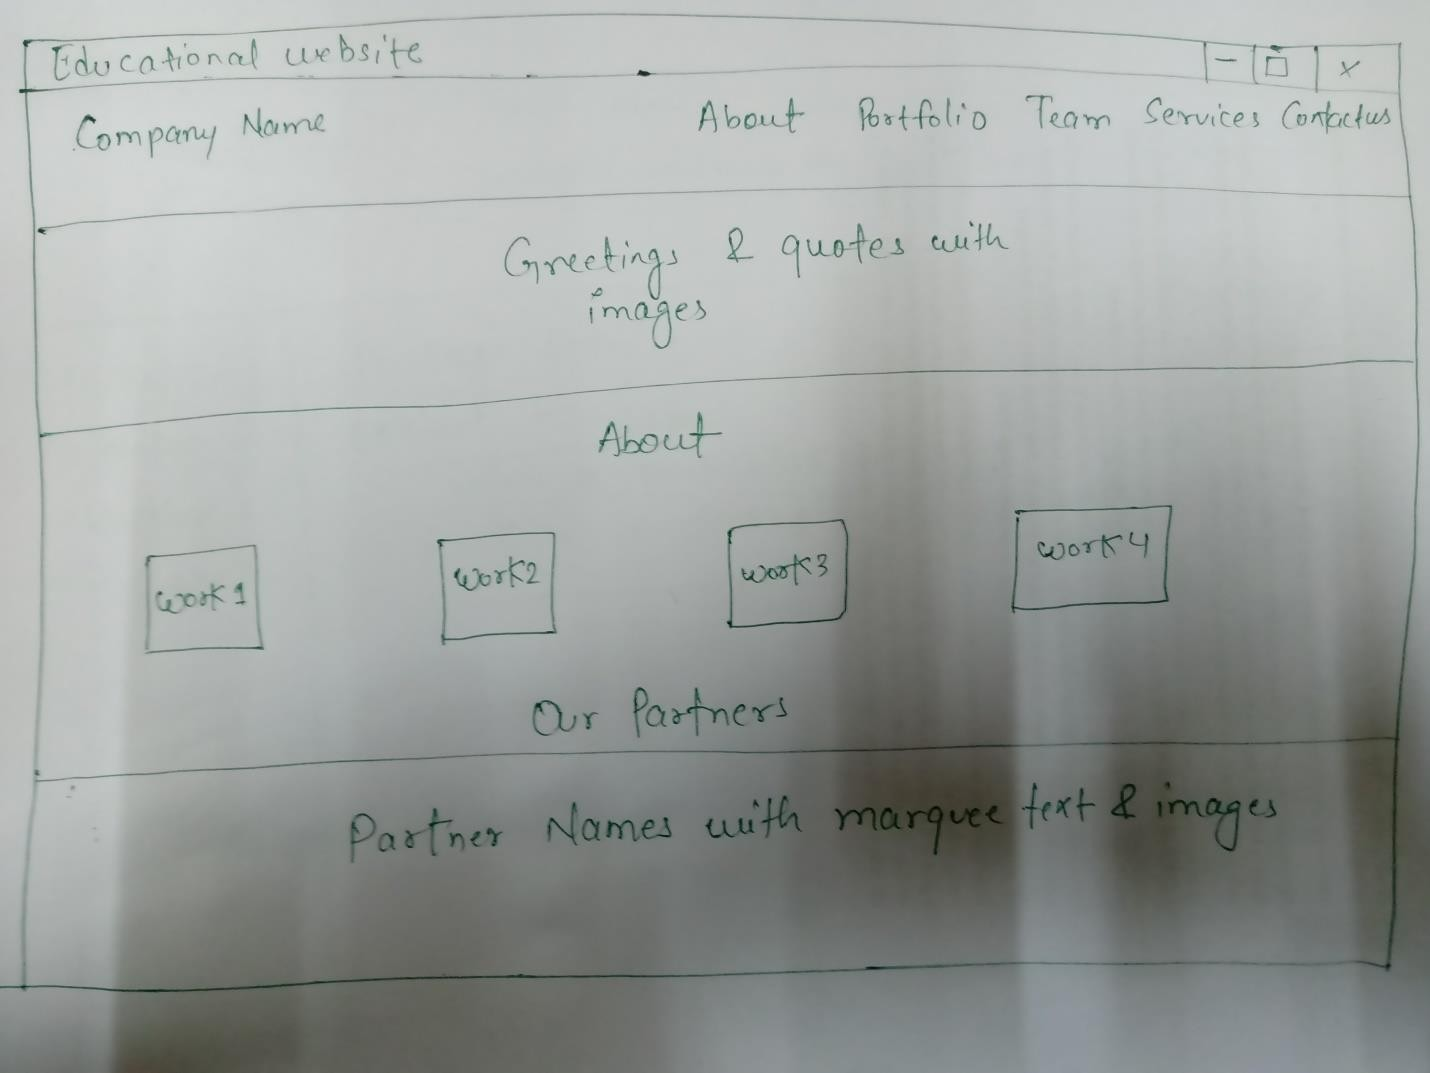 Educational website
- □ x
Company Name About Portfolio Team Services Contactus
Greetings & quotes with
images
About
work 1 work2 work3 work4
Our Partners
Partner Names with marquee text & images